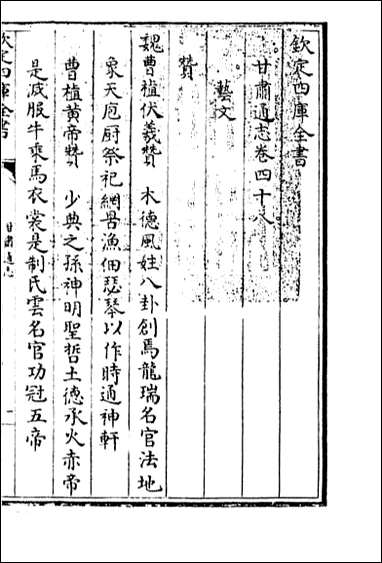 欽定四庫全書
甘肅通志卷四十八
藝文
贊
魏曹植伏羲贊　木德風姓八卦創焉龍瑞名官法地
象天庖厨祭祀網罟漁佃瑟琴以作時通神軒
曹植黄帝贊　少典之孫神明聖哲土德承火赤帝
是滅服牛乘馬衣裳是制氏雲名官功冠五帝
欽定四庫全書
甘肅通志